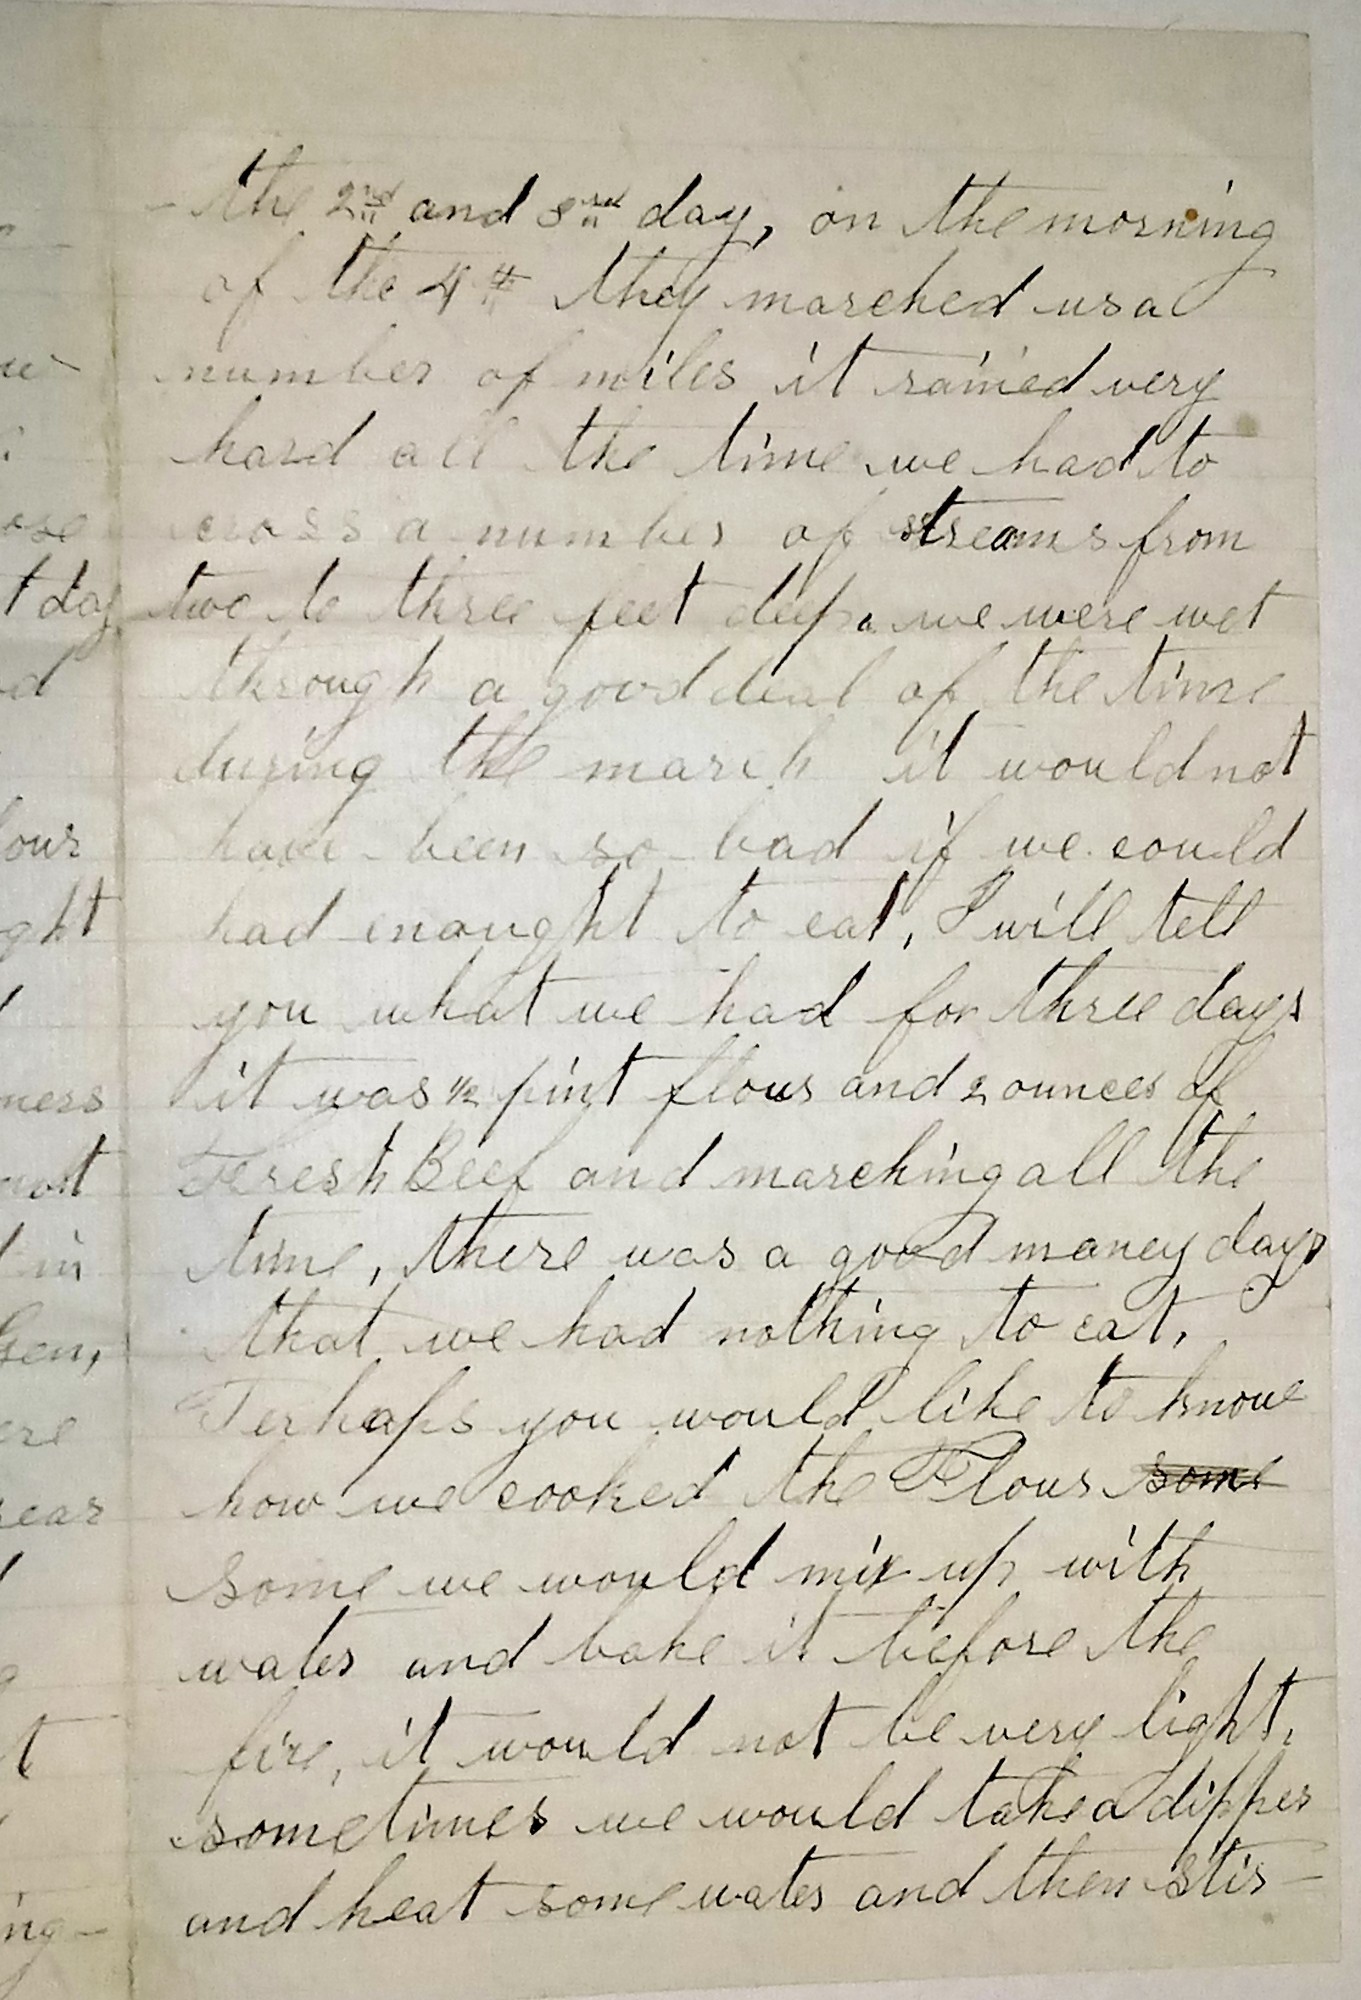 - the 2nd and 3rd day, on the morning
of the 4th they marched us a
number of miles it rained very
hard all the time we had to
cross a number of streams from
two to three feet deep. we were wet
through a good deal of the time
during the march it would not
have been so bad if we could
had enought to eat, I will tell
you what we had for three days
it was ½ pint flour and 2 ounces of
Fresh Beef and marching all the
time, there was a good maney days
that we had nothing to eat.
Perhaps you would like to know
how we cooked the Flour some
some we would mix up with
water and bake it before the
fire, it would not be very light.
sometimes we would take a dipper
and heat some water and then stir -
ose
t day
our
ght
ners
most
in
Gen,
ere
rear
ing -